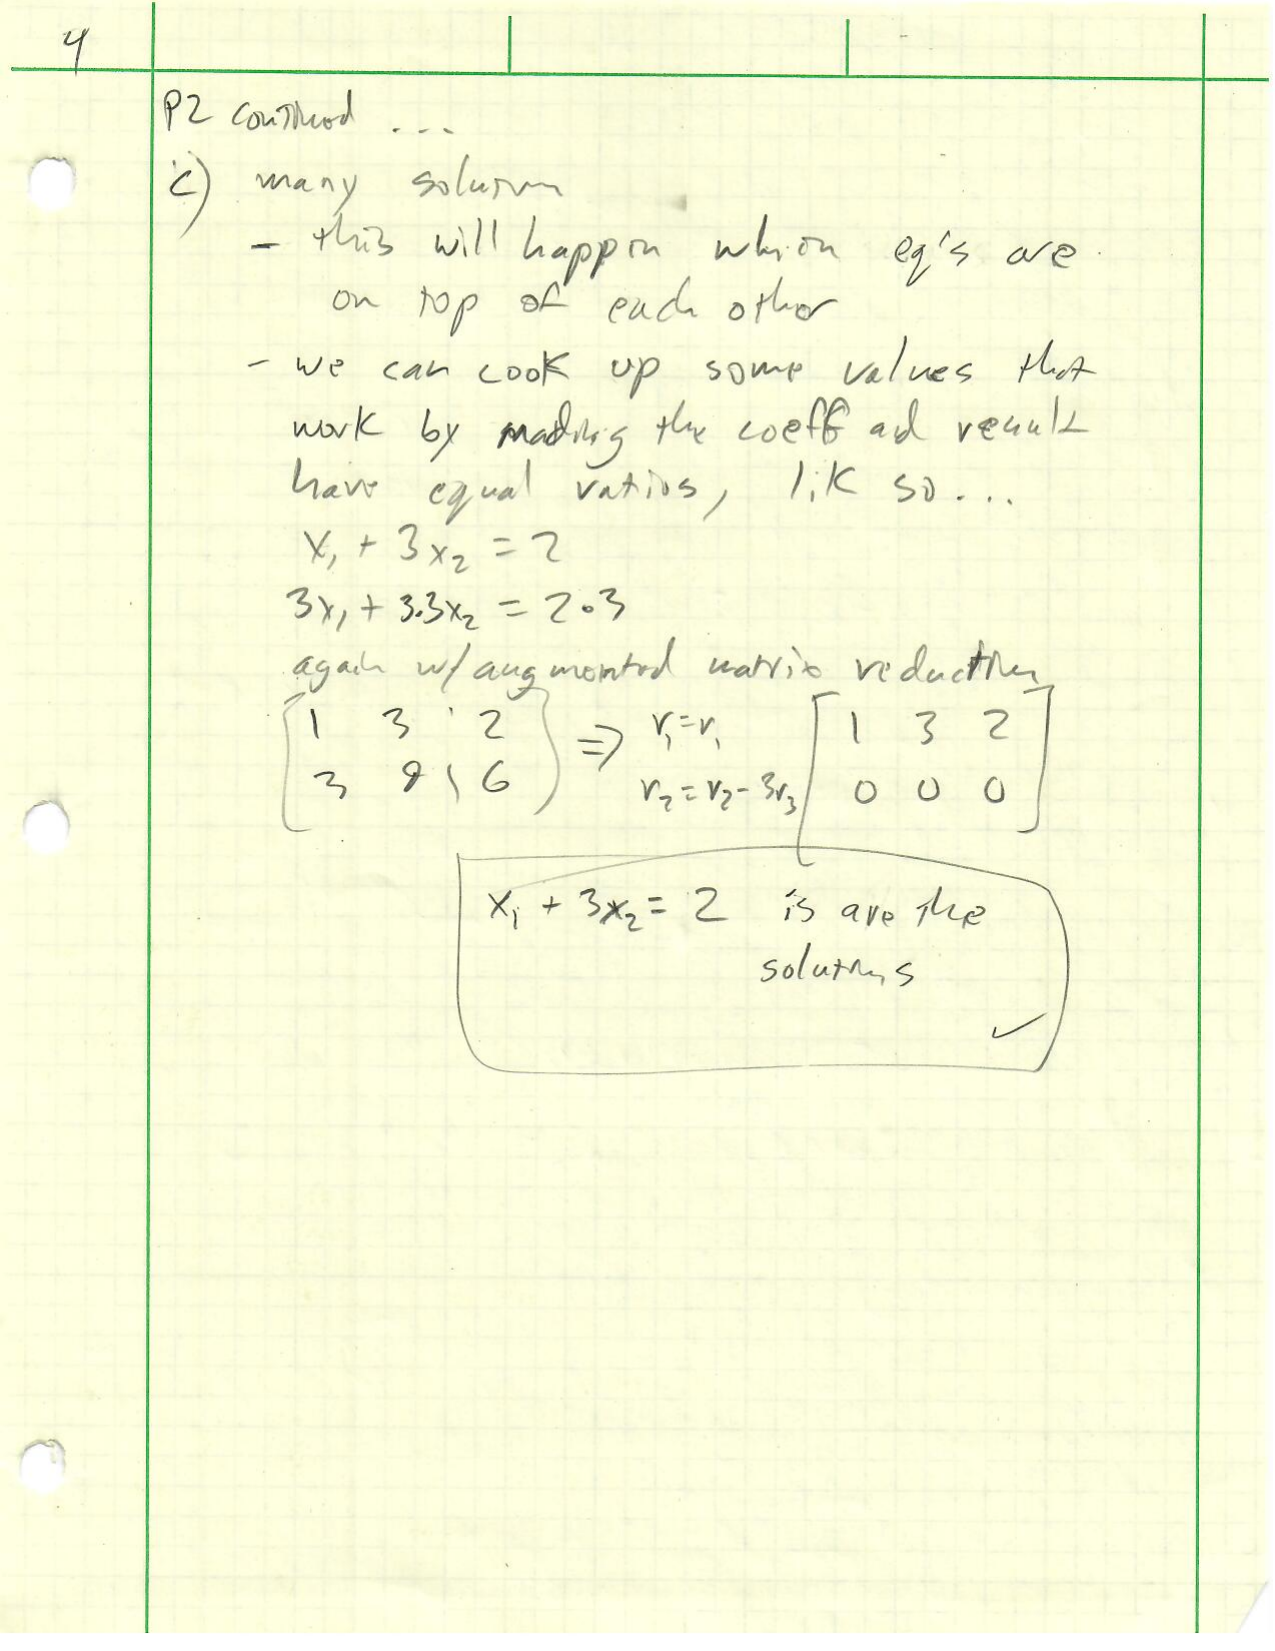 4
P2 continued ...
c) many solution
- this will happen when eq's are
on top of each other
- we can cook up some values that
work by making the coeff and result
have equal ratios, lik so...
x₁ + 3x₂ = 2
3x₁ + 3·3x₂ = 2·3
again w/ augmented matrix reduction
[1 3 | 2] ⇒ r₁=r₁ [1 3 2]
[3 9 | 6] r₂=r₂-3r₃ [0 0 0]
x₁ + 3x₂ = 2 is are the
solutions
✓